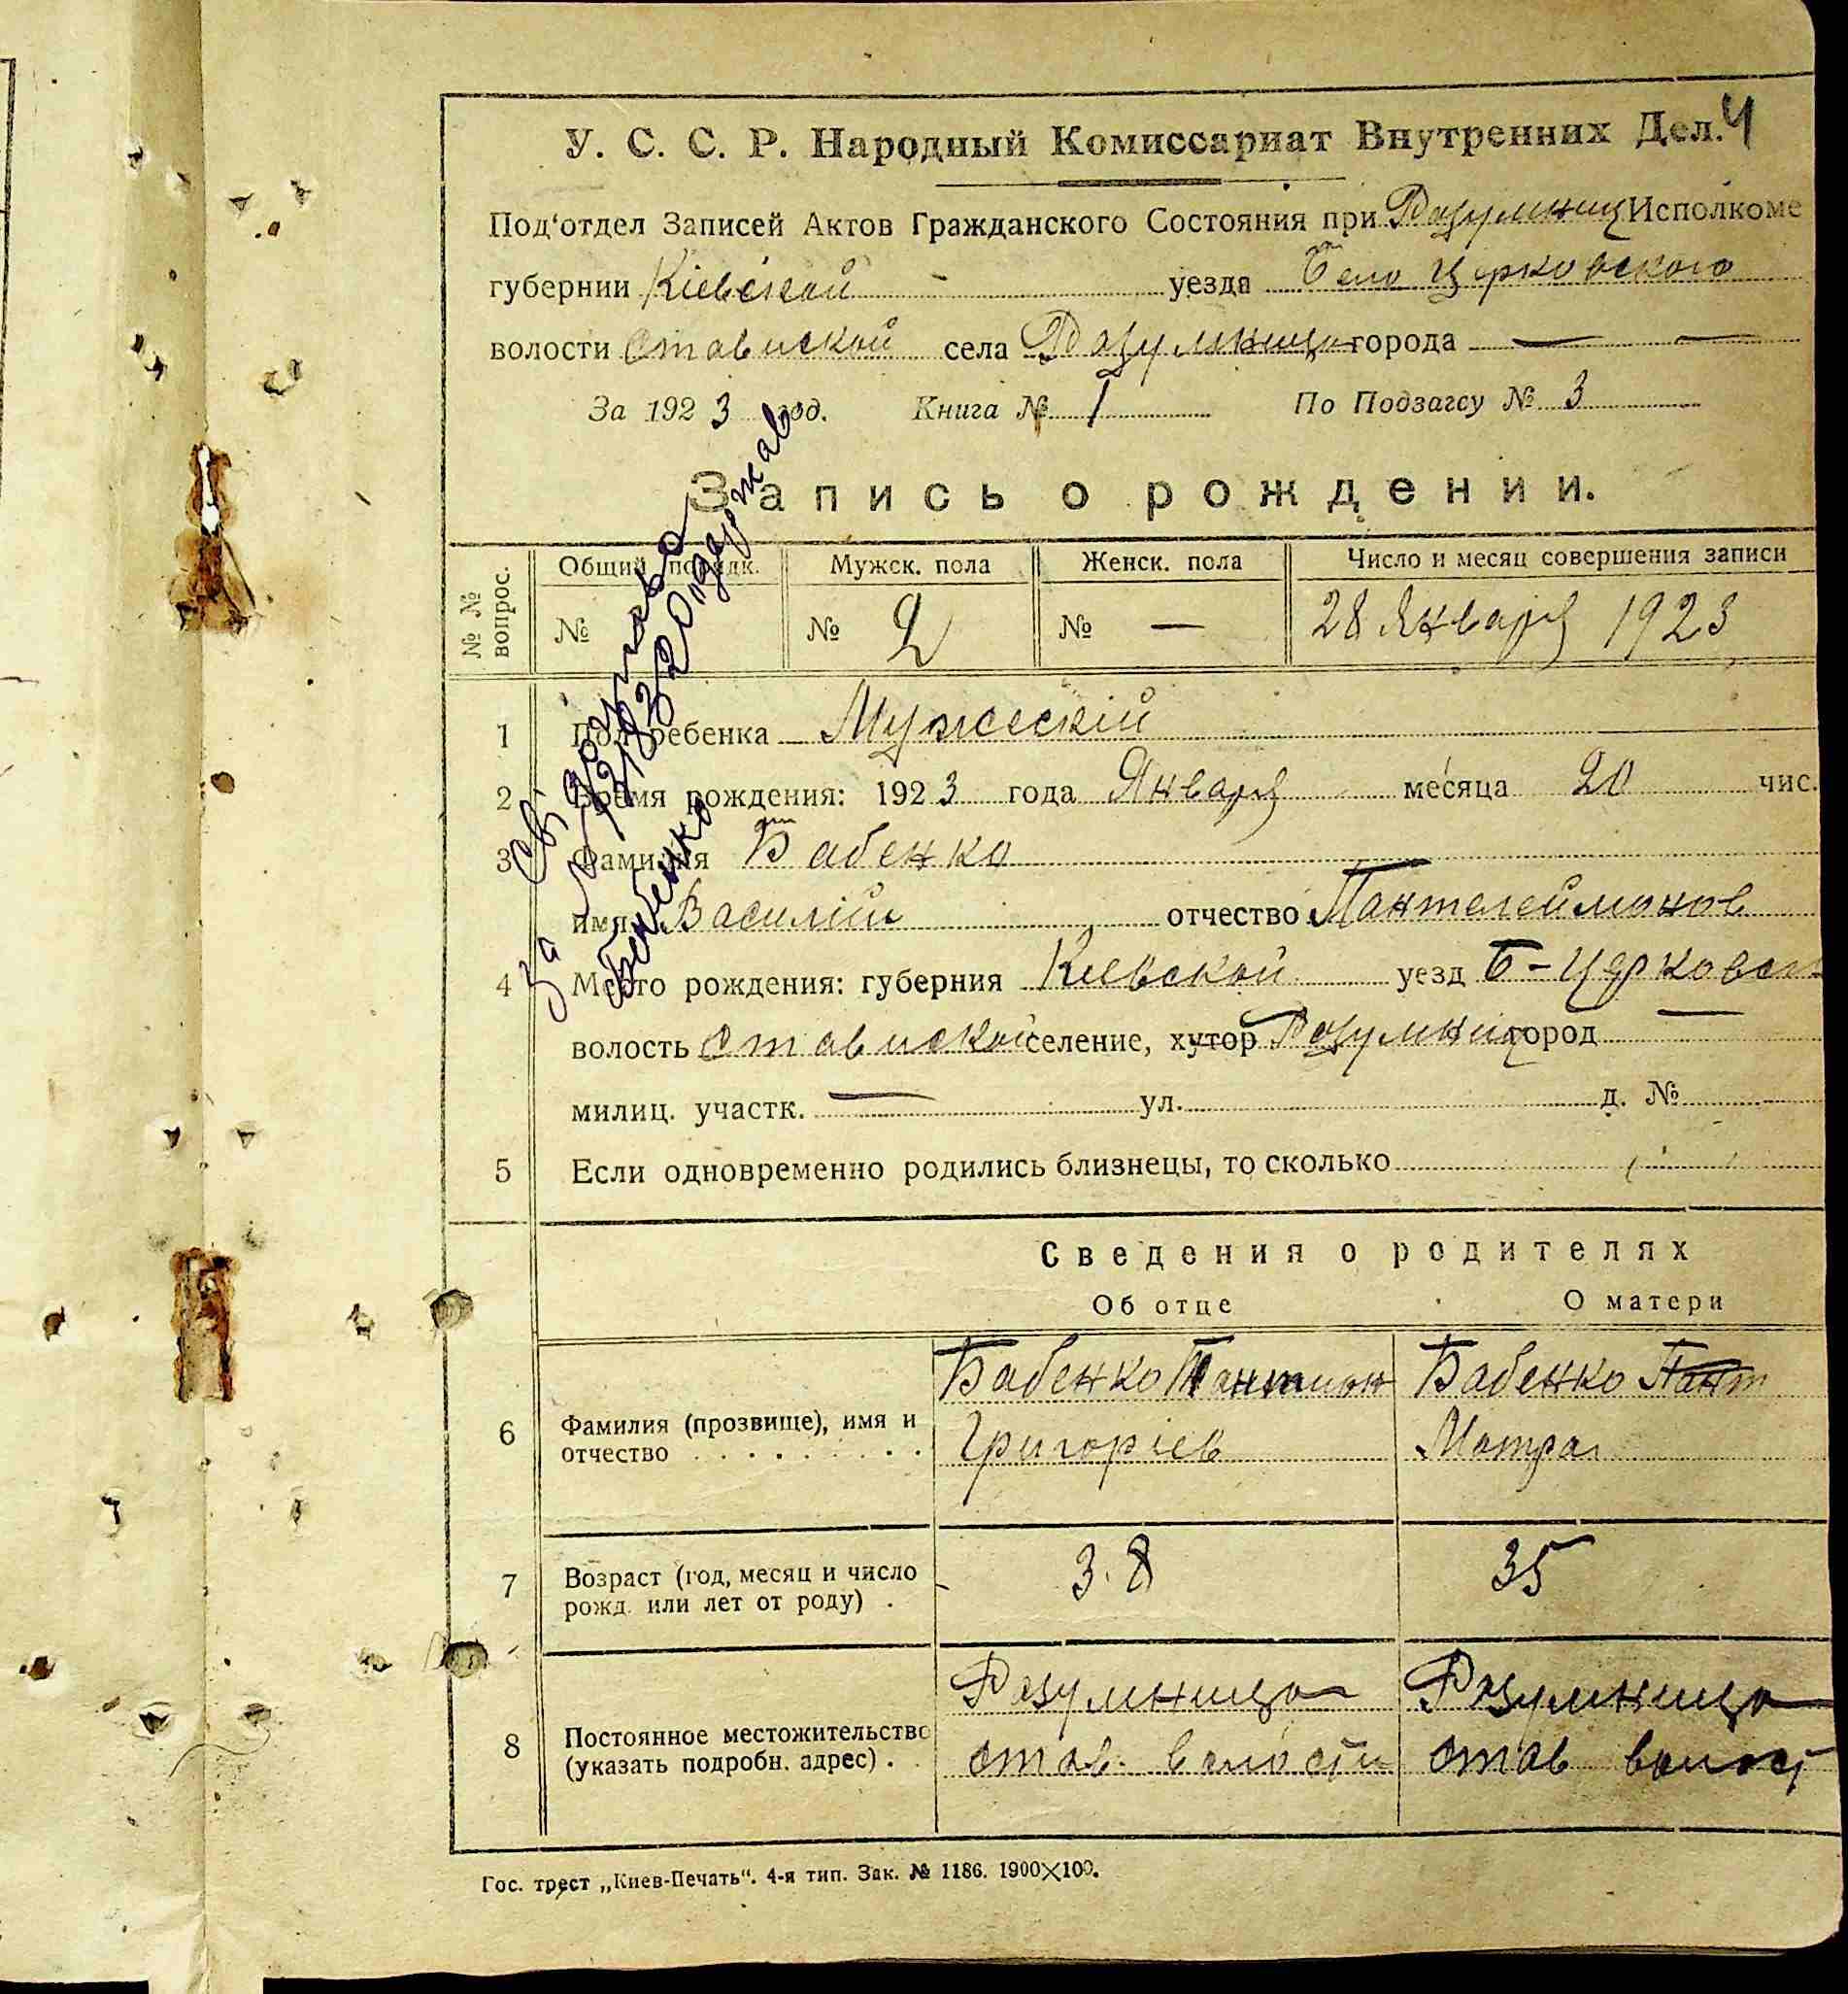 У. С. С. Р. Народный Комиссариат Внутренних Дел. 4
Под'отдел Записей Актов Гражданского Состояния при Разумниц Исполкоме
губернии Кіевской уезда Бело Церковского
волости Ставиской села Разумница города — —
За 1923 год. Книга № 1 По Подзагсу № 3
Запись о рождении.
№ № вопрос.
Общий порядк. Мужск. пола Женск. пола Число и месяц совершения записи
№ № 2 № — 28 Января 1923
1 Пол ребенка Мужескій
2 Время рождения: 1923 года Января месяца 20 чис.
3 Фамилия Бабенко
имя Василій отчество Пантелеймонов
4 Место рождения: губерния Киевской уезд Б-Церковск
волость Ставиской селение, хутор Разумниц город —
милиц. участк. — ул. д. №
5 Если одновременно родились близнецы, то сколько
Сведения о родителях
Об отце О матери
6 Фамилия (прозвище), имя и отчество
Бабенко Пантилон Григоріев
Бабенко Пант Мотра
7 Возраст (год, месяц и число рожд. или лет от роду) .
3.8 35
8 Постоянное местожительство (указать подробн. адрес) .
Разумница став. волости
Разумница став волост
Гос. трест „Киев-Печать“. 4-я тип. Зак. № 1186. 1900×100.
Бабенко